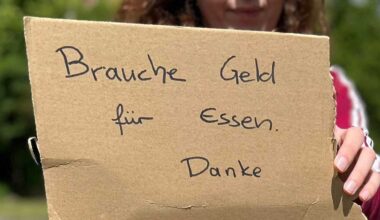 Brauche Geld
für Essen.
Danke